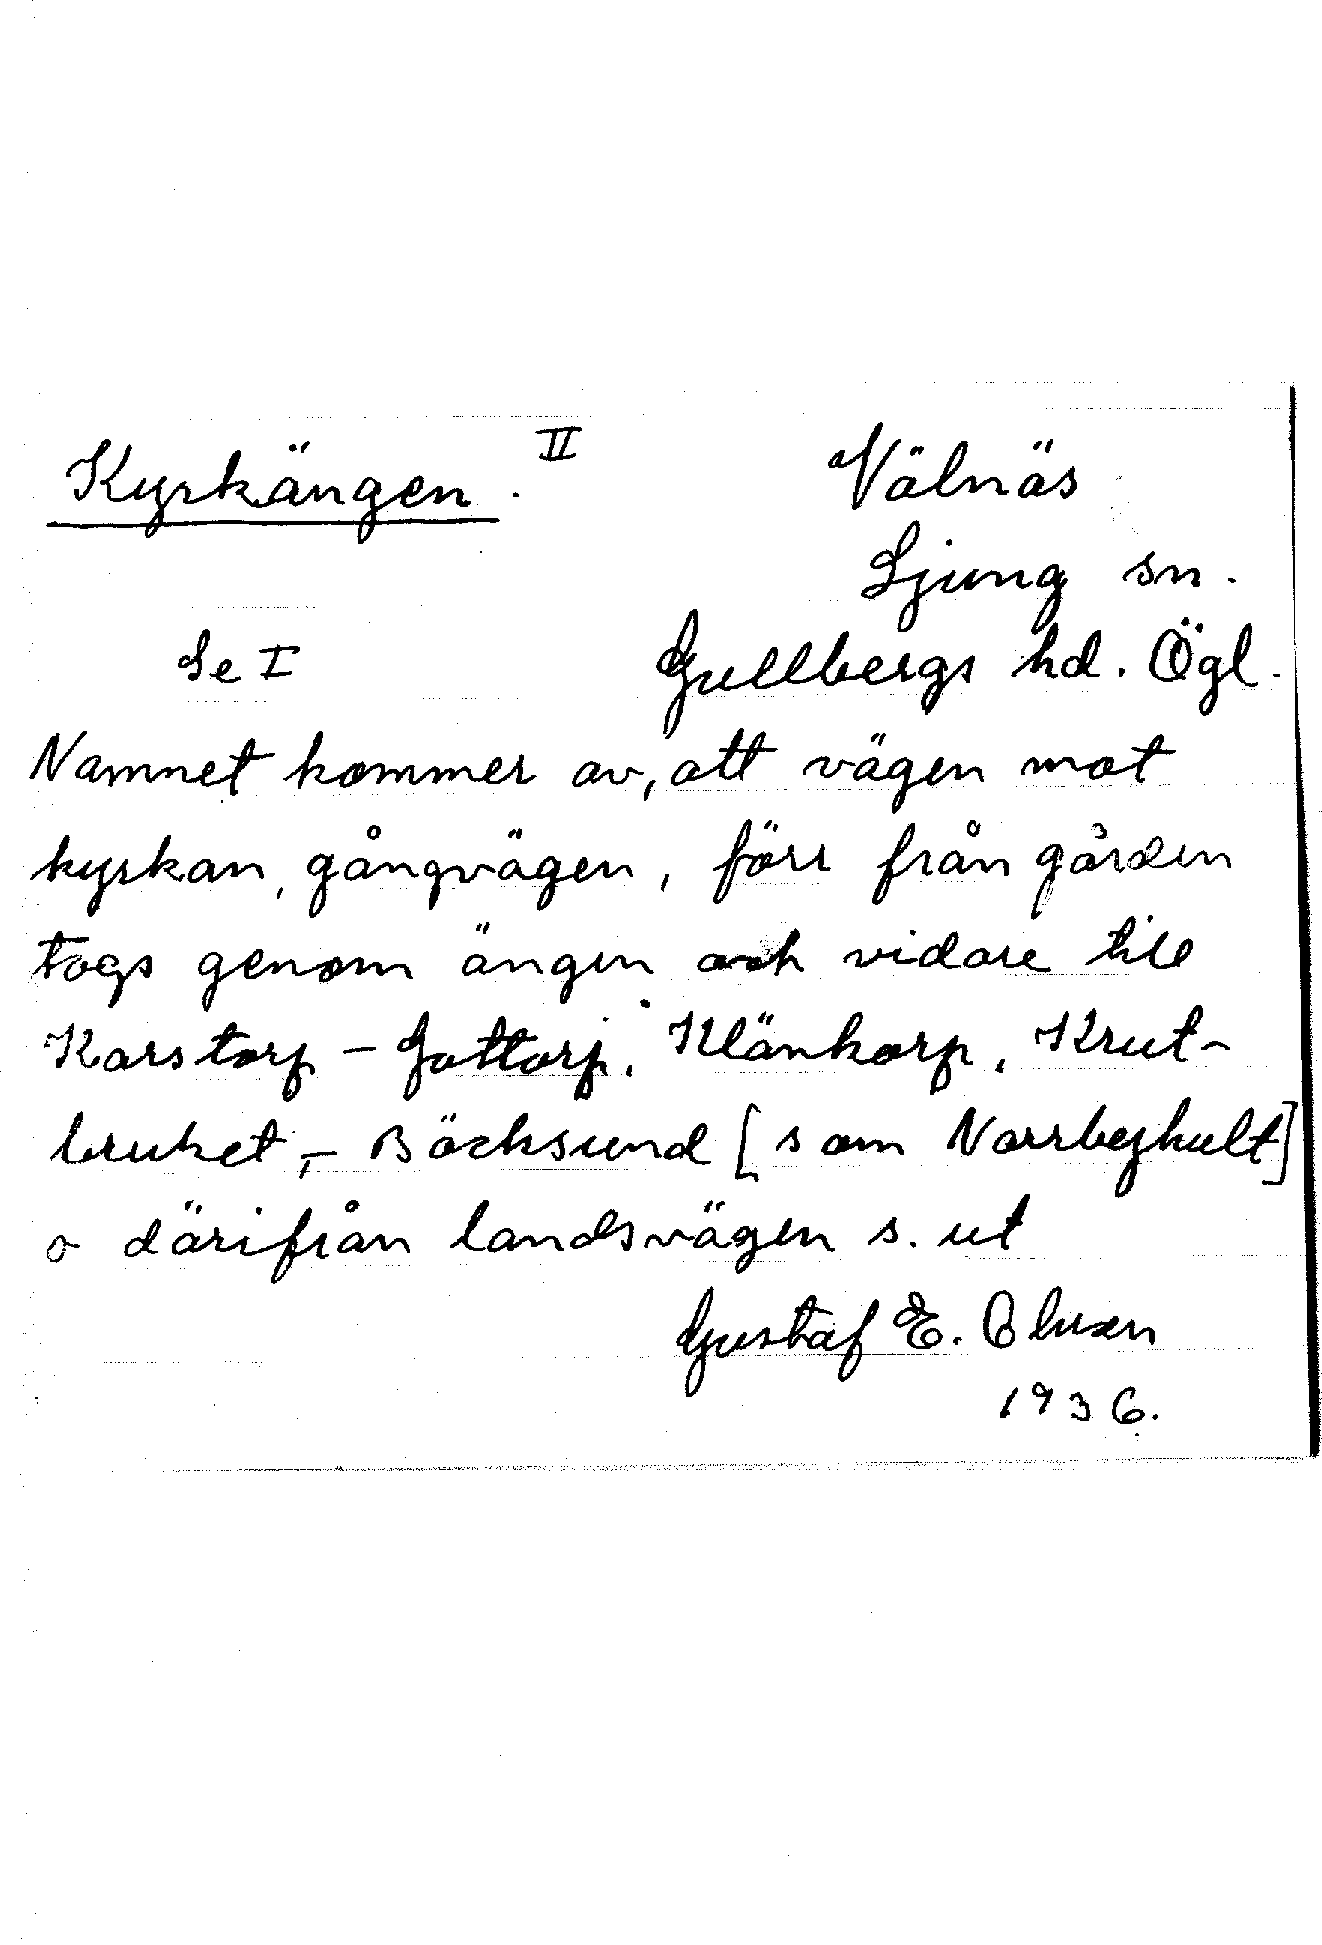 Kyrkängen. II
Välnäs
Ljung sn.
Se I
Gullbergs hd. Ögl.
Namnet kommer av, att vägen mot
kyrkan, gångvägen, förr från gården
togs genom ängen och vidare till
Karstorp - Gottorp, Klänkorp, Krut-
bruket, - Bäcksund [som Norrbyhult]
o därifrån landsvägen s. ut
Gustaf E.
1936.